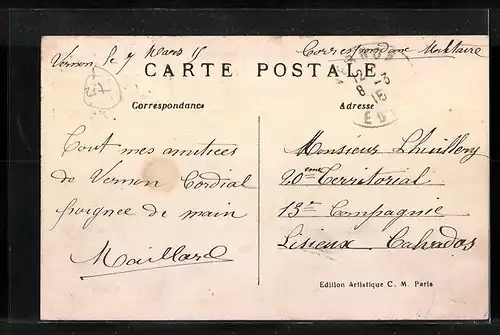 Vernon le 7 Mars 15
Correspondance Militaire
CARTE POSTALE
Correspondance
Adresse
Tout mes amitiees
de Vernon Cordial
poignee de main
Maillard
Monsieur Lhuillery
20eme Territorial
13e Compagnie
Lisieux Calvados
Edition Artistique C. M. Paris